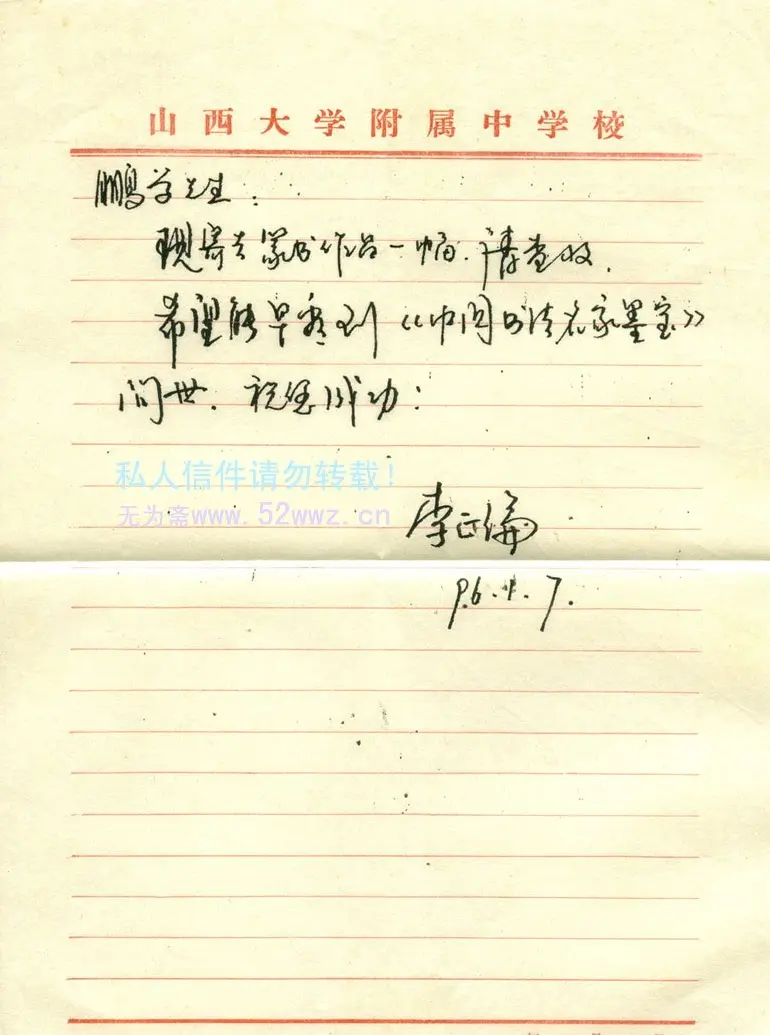 山西大学附属中学校
鹏学先生：
现寄去篆书作品一幅，请查收。
希望能早看到《中国书法名家墨宝》
问世。祝您成功！
私人信件请勿转载！
无为斋www.52wwz.cn
李正
96.4.7.